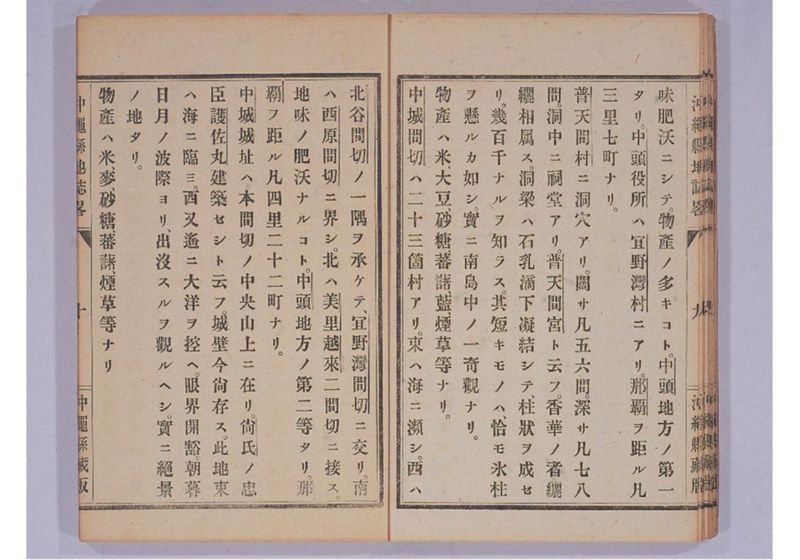 味肥沃ニシテ、物產ノ多キコト。中頭地方ノ第一
タリ。中頭役所ハ宜野灣村ニアリ。那覇ヲ距ル凡
三里七町ナリ。
普天間村ニ洞穴アリ。闊サ凡五六間。深サ凡七八
間。洞中ニ祠堂アリ。普天間宮ト云フ。香華ノ者纚
纚相属ス。洞梁ハ石乳滴下凝結シテ、柱狀ヲ成セ
リ。幾百千ナルヲ知ラス。其短キモノハ、恰モ氷柱
ヲ懸ルカ如シ。實ニ南島中ノ一奇觀ナリ。
物產ハ米大豆、砂糖、蕃藷、藍、煙草等ナリ。
中城間切ハ二十三箇村アリ。東ハ海ニ瀕シ。西ハ
九
北谷間切ノ一隅ヲ承ケテ、宜野灣間切ニ交リ。南
ハ西原間切ニ界シ。北ハ美里越來二間切ニ接ス。
地味ノ肥沃ナルコト。中頭地方ノ第二等タリ。那
覇ヲ距ル凡四里二十二町ナリ。
中城城址ハ本間切ノ中央山上ニ在リ。尙氏ノ忠
臣護佐丸建築セシト云フ。城壁今尙存ス。此地東
ハ海ニ臨ミ。西又遙ニ大洋ヲ控ヘ。眼界開豁。朝暮
日月ノ波際ヨリ、出沒スルヲ觀ルヘシ。實ニ絕景
ノ地タリ。
物產ハ米、麥、砂糖、蕃藷、煙草等ナリ
沖繩縣地誌畧
十
沖繩縣藏版